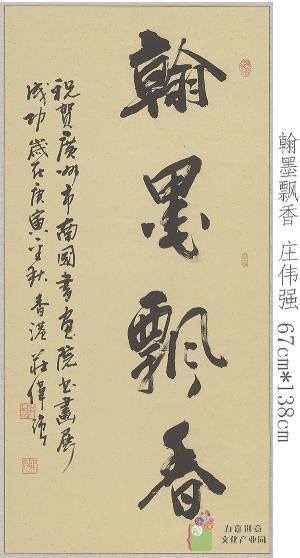 翰墨飘香
祝贺廣州市南國書畫院书畫展
成功歲在庚寅年秋香港莊偉强
翰墨飘香 庄伟强 67cm*138cm
力嘉创意
文化产业园